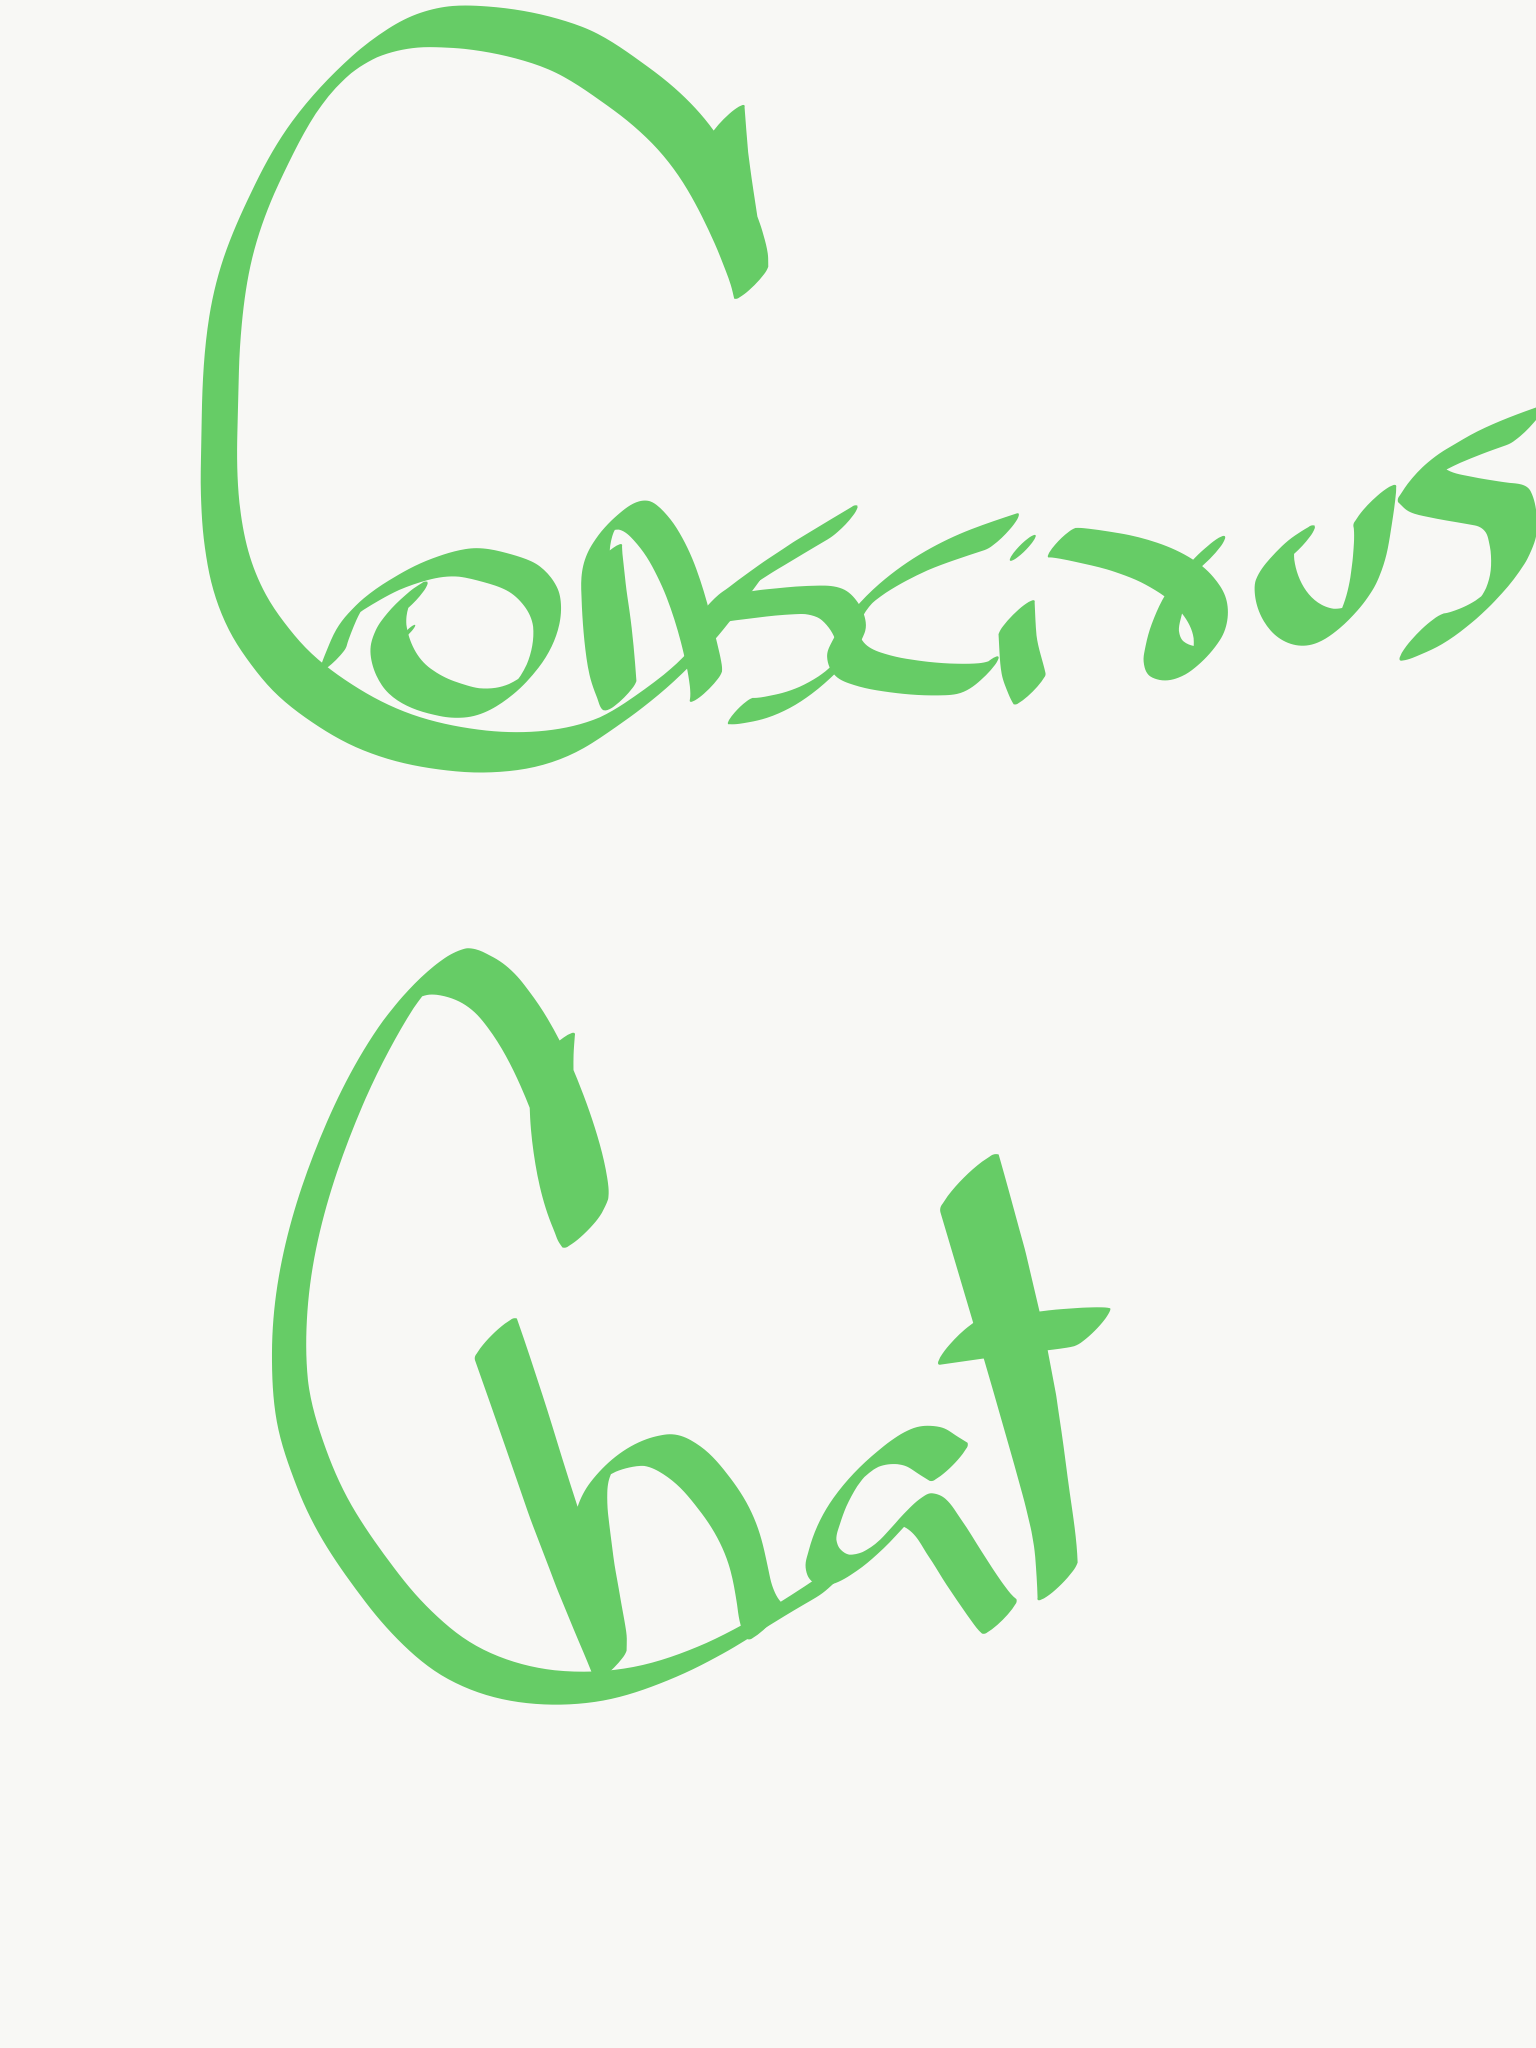 Conscious
Chat